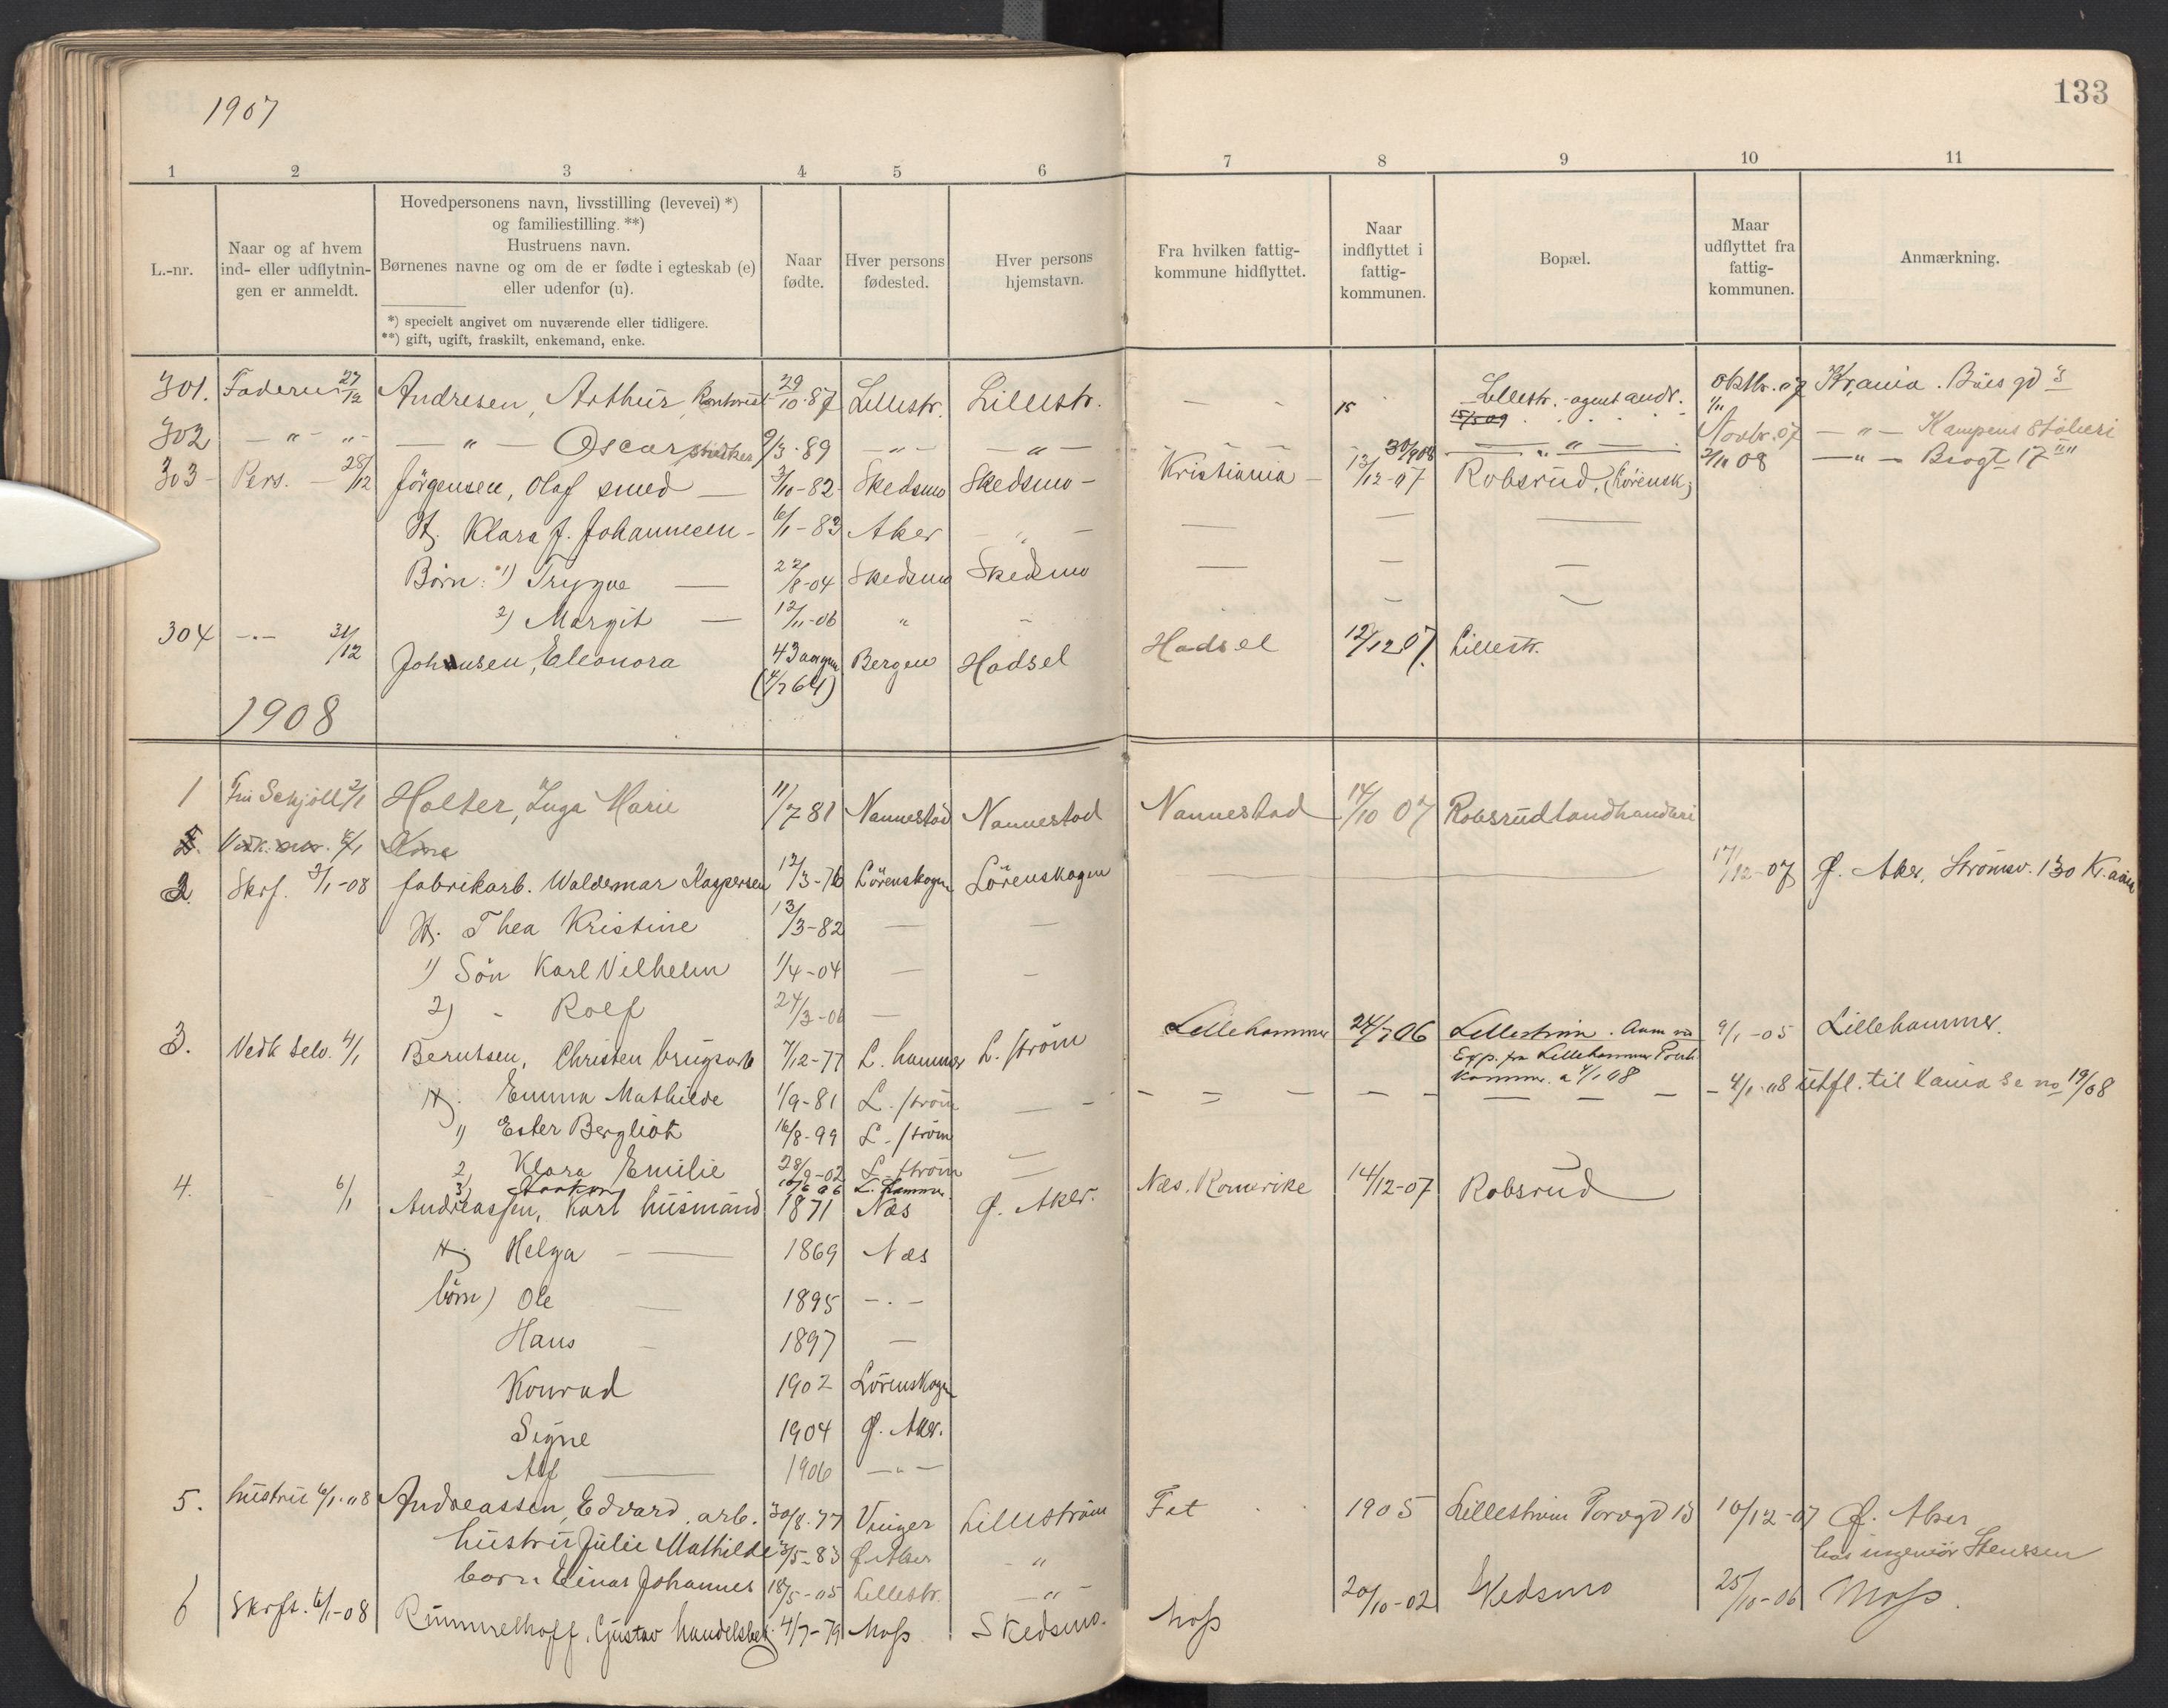 133
1907
1 2 3 4 5 6 7 8 9 10 11
L.-nr.
Naar og af hvem
ind- eller udflytnin-
gen er anmeldt.
Hovedpersonens navn, livsstilling (levevei) *)
og familiestilling. **)
Hustruens navn.
Børnenes navne og om de er fødte i egteskab (e)
eller udenfor (u).
*) specielt angivet om nuværende eller tidligere.
**) gift, ugift, fraskilt, enkemand, enke.
Naar
fødte.
Hver persons
fødested.
Hver persons
hjemstavn.
Fra hvilken fattig-
kommune hidflyttet.
Naar
indflyttet i
fattig-
kommunen.
Bopæl.
Maar
udflyttet fra
fattig-
kommunen.
Anmærkning.
301. Faderen 27/12 Andresen, Arthur 29/10-87 Lillestr. Lillestr. — — 15 Lillestr. - agent andr. oktbr. 07 Krania. Bües gd 3
15/5 09 1/11
302 — " — " — — " — Oscar 9/3-89 — " — — " — — " — Novbr. 07 — " — Kampens Støberi
303 - Pers. — 28/12 Jörgensen, Olaf smed — 3/10-82 Skedsmo Skedsmo - Kristiania - 13/12-07 30/9 08 Robsrud, (Lörensk) 2/10 08 — " — Brogt 17
H. Klara J. Johannesen - 6/1-83 Aker — " —
Börn: 1) Trygve — 22/8-04 Skedsmo Skedsmo
2) Margit — 12/11-06 "
304 — " — 31/12 Johansen, Eleonora 43 aar Bergen Hadsel Hadsel 12/12 07. Lillestr.
(4/7 64)
1908
1 Fru Schjöll 2/1 Holter, Inga Marie 11/7 81 Nannestad Nannestad Nannestad 14/10 07 Robsrud landhandleri
2. Skrf. 3/1-08 fabrikarb. Waldemar Kaspersen 12/3-76 Lörenskogen Lörenskogen — 17/12-07 Ø. Aker, Strömsv. 130 Kr.
H. Thea Kristine 13/3-82 — —
1) Sön Karl Vilhelm 1/4-04 — -
2) - Rolf 24/3-06 —
3. Vedk selv. 4/1 Berntsen, Christen brugsarb 7/12-77 L. hammer L. ström Lillehammer 24/7 06 Lilleström. Anm 9/1-05 Lillehammer.
Exp. fra Lillehammer
komm. a 4/1 08
H. Emma Mathilde 1/9-81 L. ström — - - = — — - — — — - 4/1-08 utfl. til Kania se no 19/08
1) Ester Bergliot 16/8-99 L. ström
2) Klara Emilie 28/9-02 L. ström
3) Haakon 10/6 06 L. hammer
4. 6/1 Andreassen, Karl husmand 1871 Næs Ø. Aker. Næs, Romerike 14/12-07 Robsrud
H. Helga — 1869 Næs
börn) Ole — 1895 — . —
Hans - 1897 —
Konrad 1902 Lörenskogen
Signe 1904 Ø. Aker.
Alf — 1906 — " —
5. hustru 6/1-08 Andreassen, Edvard, arb. 30/8-77 Vinger Lilleström Fet 1905 Lilleström Torvgd 13 10/12-07 Ø. Aker
hos ingeniör Stenssen
hustru Julie Mathilde 3/5-83 Ø Aker "
barn Einar Johannes 18/5-05 Lillestr. — " —
6 Skrft. 6/1-08 Rummelhoff, Gustav handelsbetj. 4/7-79 Moss Skedsmo. Moss 20/10-02 Skedsmo 25/10-06 Moss.